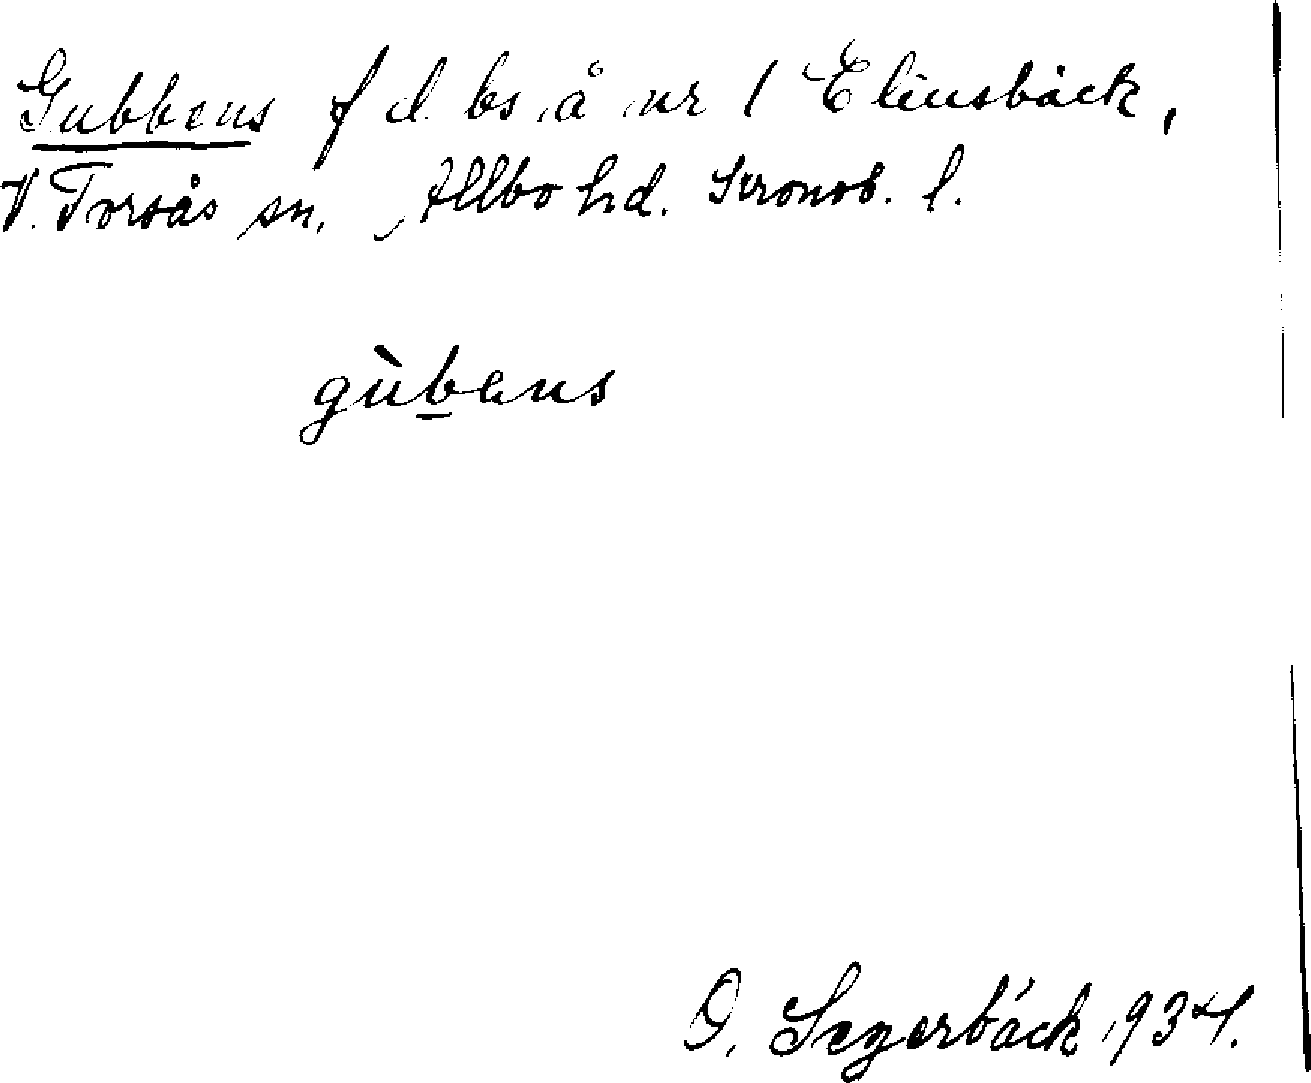 Gubbens f d bs å nr 1 Elinsbäck,
V. Torsås sn, Allbo hd. Kronob. l.
gùbens
O. Segerbäck 1934.